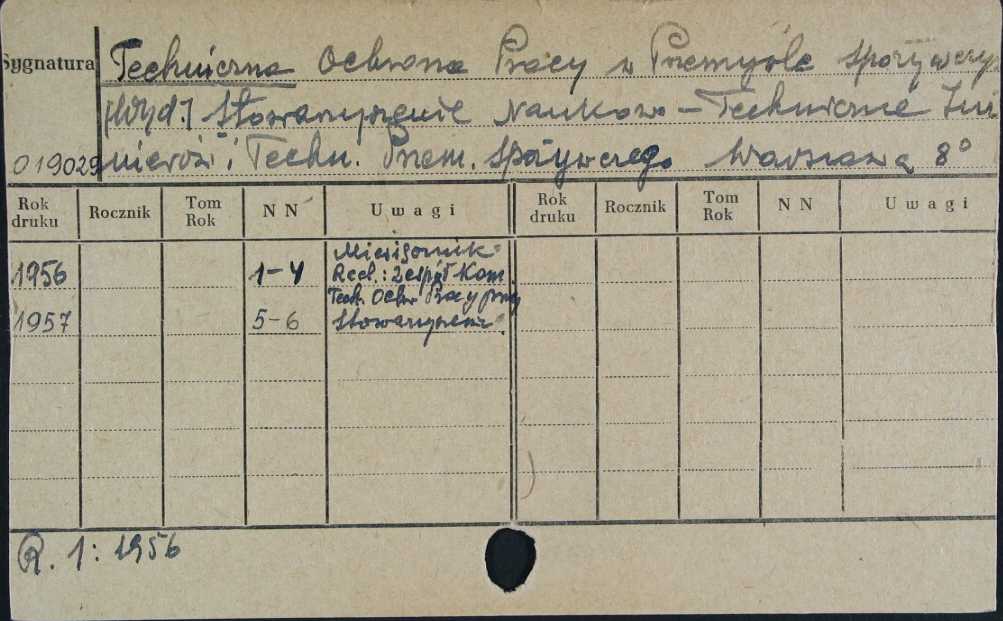 Sygnatura
Techniczna Ochrona Pracy w Przemyśle Spożywczy
[Wyd.] Stowarzyszenie Naukowo-Techniczne Inż
019029 nierów i Techn. Przem. Spożywczego Warszawa 8°
Rok druku Rocznik Tom Rok NN Uwagi Rok druku Rocznik Tom Rok NN Uwagi
Miesięcznik
1956 1-4 Red.: Zespół Kom.
Tech. Ochr. Pracy przy
1957 5-6 Stowarzyszeniu
R. 1: 1956